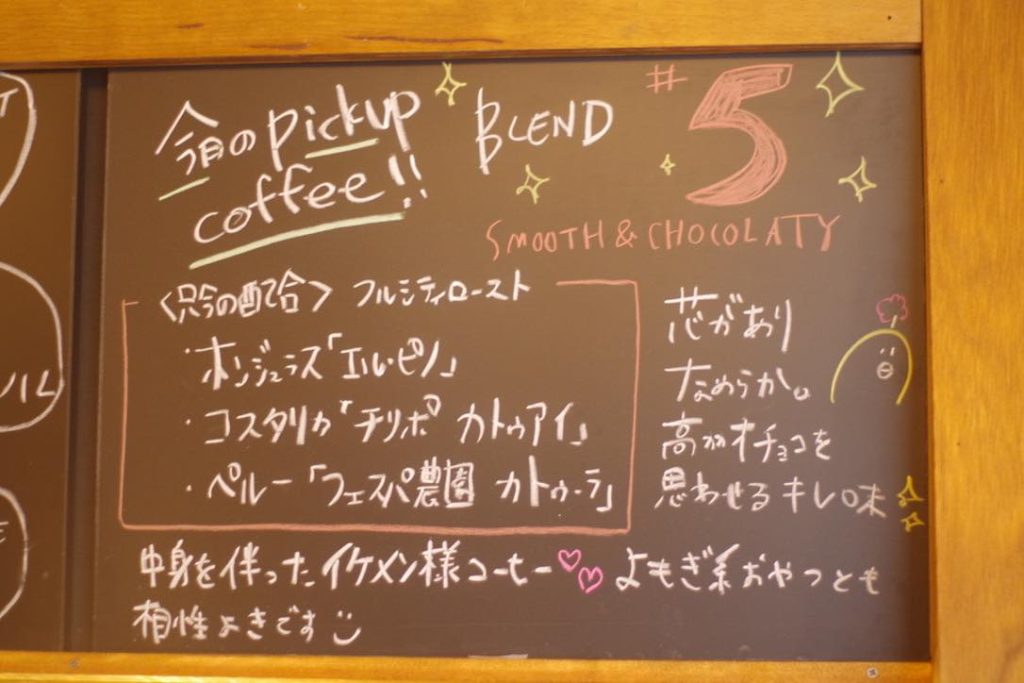 今月の pickup
coffee!!
BLEND #5
SMOOTH & CHOCOLATY
<只今の配合> フルシティロースト
・ホンジュラス「エル・ピノ」
・コスタリカ「チリポ カトゥアイ」
・ペルー「フェスパ農園 カトゥーラ」
芯があり
なめらか。
高カカオチョコを
思わせるキレ味
中身を伴ったイケメン様コーヒー♡♡よもぎ系おやつとも
相性よきです
ル